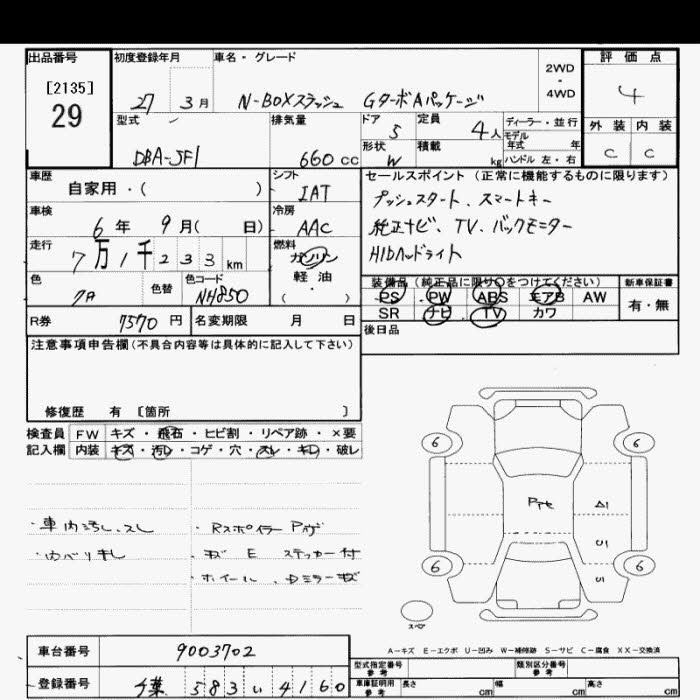 出品番号 初度登録年月 車名・グレード 2WD・4WD 評価点
[2135]
29
27 3月 N-BOXスラッシュ GターボAパッケージ 4
型式 排気量 ドア 定員 ディーラー・並行 外装 内装
DBA-JF1 660cc 5 4人 モデル年式 年 C C
形状 W 積載 kg ハンドル 左・右
車歴 シフト セールスポイント(正常に機能するものに限ります)
自家用・( ) IAT プッシュスタート、スマートキー
車検 冷房 純正ナビ、TV、バックモニター
6年 9月( 日) AAC HIDヘッドライト
走行 7万1千233km 燃料 ガソリン
軽油
( )
色 色替 色コード NH850
装備品(純正品に限り○をつけてください) 新車保証書
PS PW ABS エアB AW 有・無
SR ナビ TV カワ
R券 7570円 名変期限 月 日 後日品
注意事項申告欄(不具合内容等は具体的に記入して下さい)
修復歴 有 [箇所 ]
検査員 FW キズ・飛石・ヒビ割・リペア跡・×要
記入欄 内装 キズ・汚レ・コゲ・穴・スレ・キレ・破レ
6 6
Pte A1
・車内汚レ、スレ ・Rスポイラー
U1
キズ E ステッカー付
6 6
・ホイール、Dミラーキズ
スペア
A-キズ E-エクボ U-凹み W-補修跡 S-サビ C-腐食 XX-交換済
車台番号 9003702
型式指定番号 参考 類別区分番号 参考
登録番号 千葉 583 い 4160
車庫証明用 参考 長さ cm 幅 cm 高さ cm